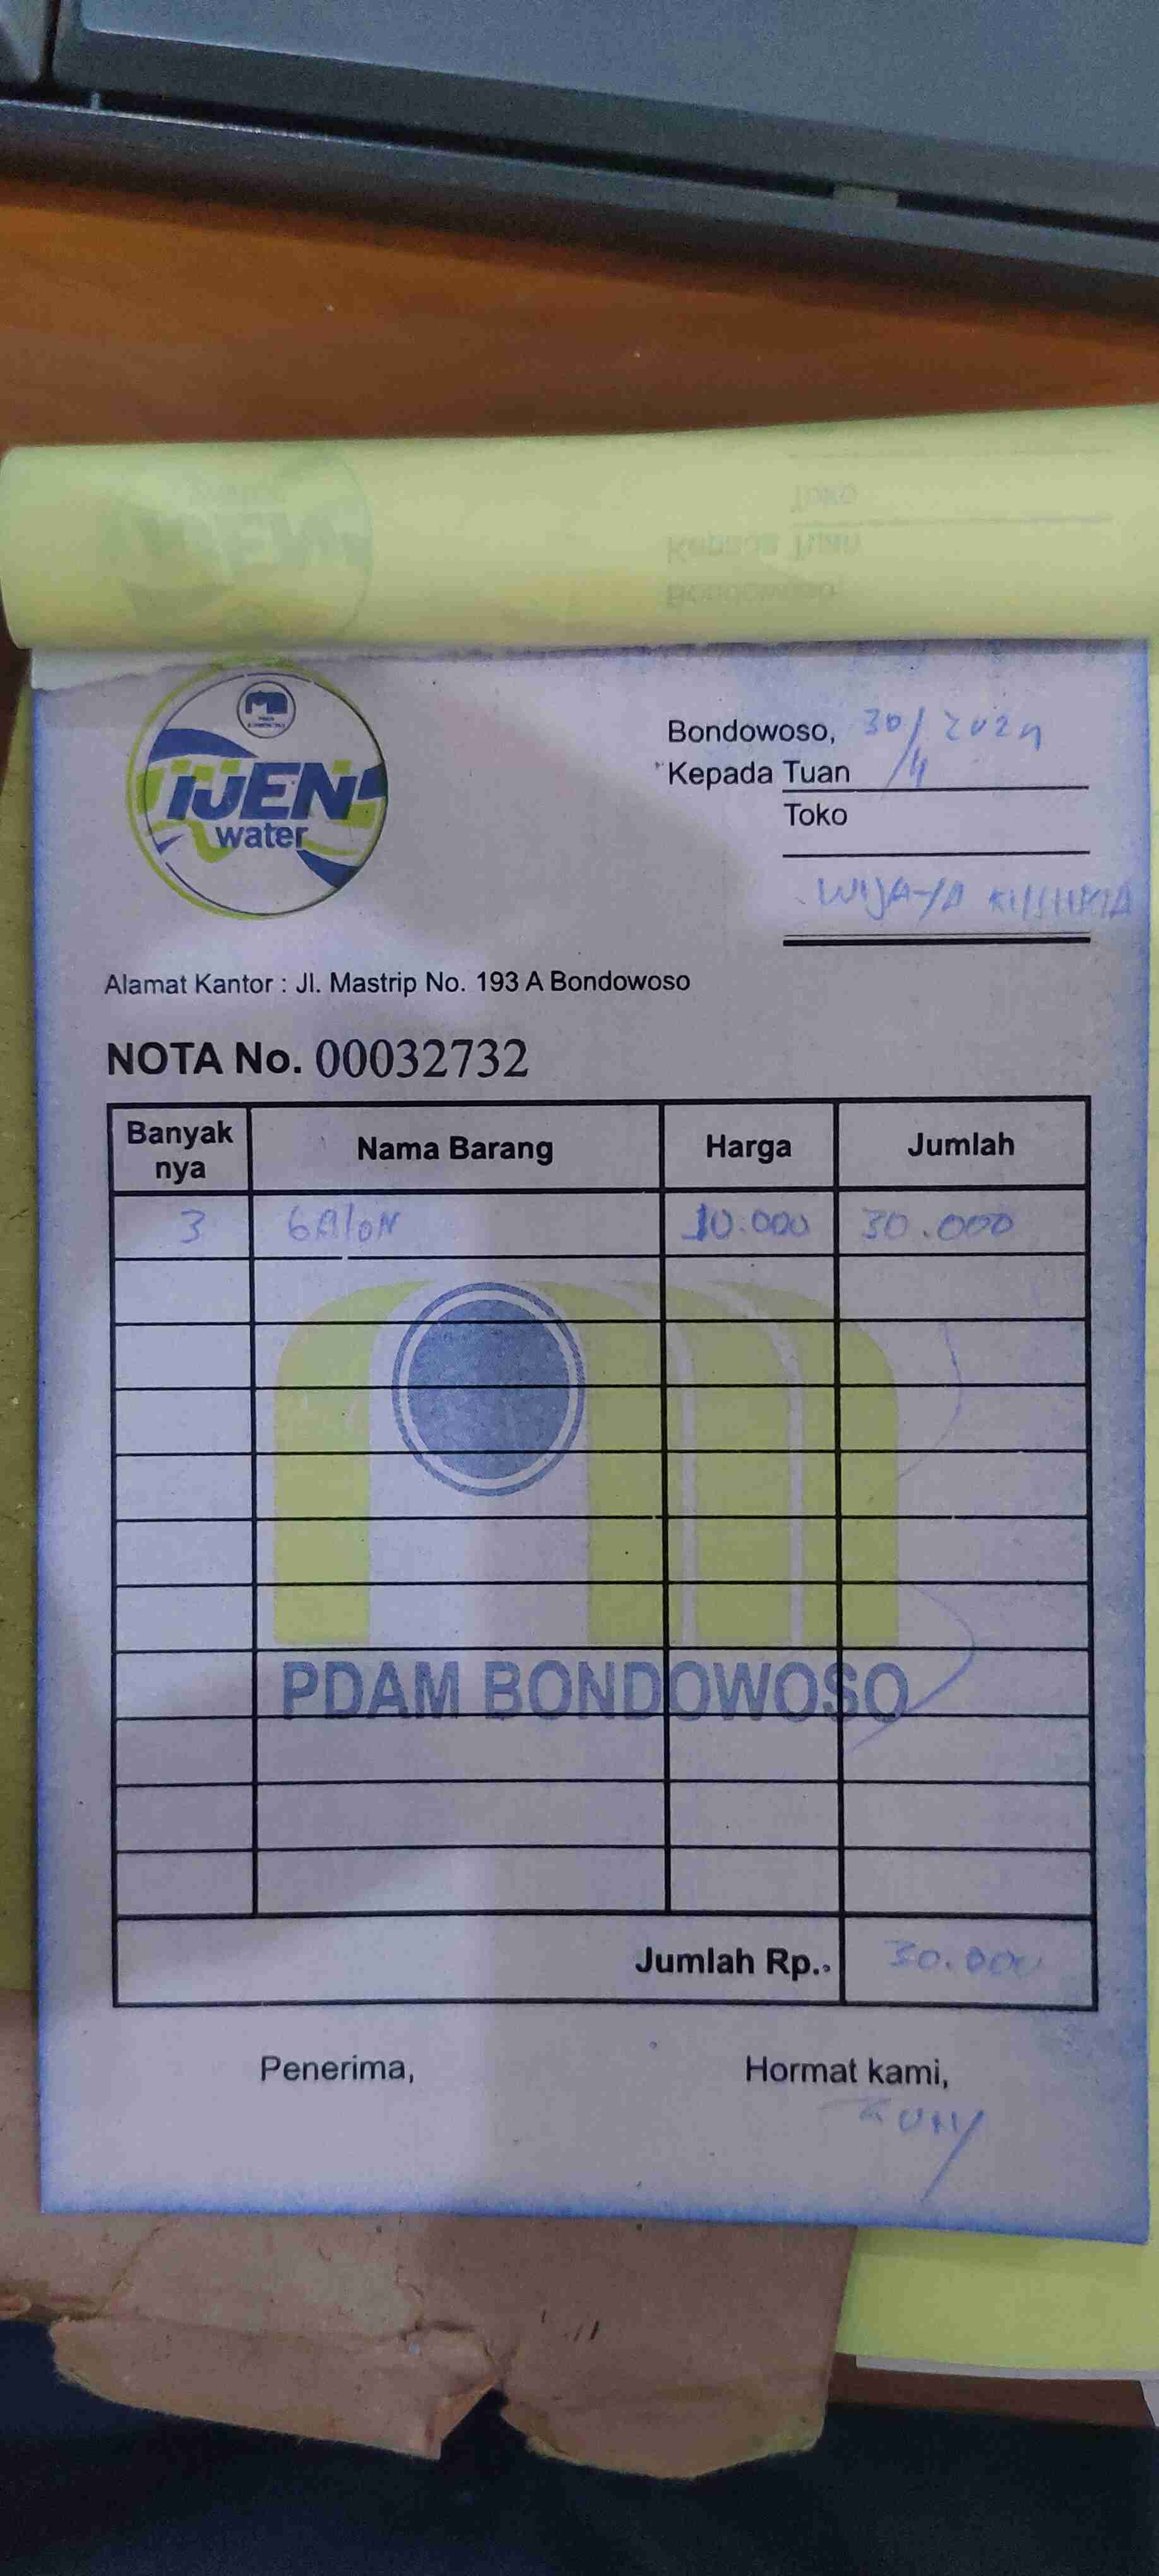 IJEN
water
Bondowoso, 30/4/2024
Kepada Tuan
Toko
WIJAYA KUSUMA
Alamat Kantor : Jl. Mastrip No. 193 A Bondowoso
NOTA No. 00032732
Banyak nya Nama Barang Harga Jumlah
3 GAlON 10.000 30.000
PDAM BONDOWOSO
Jumlah Rp. 30.000
Penerima, Hormat kami,